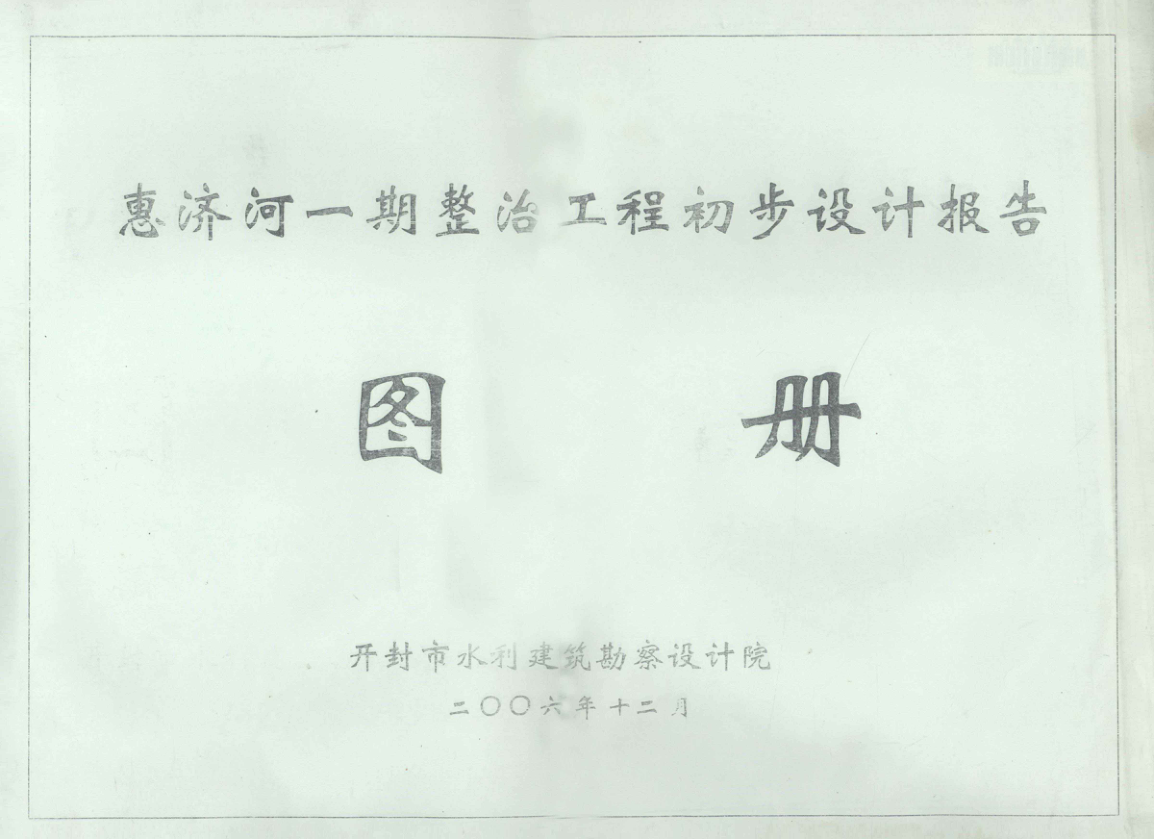 惠济河一期整治工程初步设计报告
图册
开封市水利建筑勘察设计院
二〇〇六年十二月